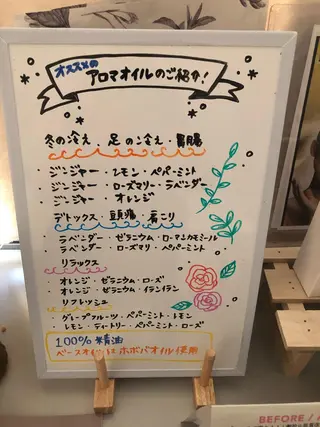 オススメの
アロマオイルのご紹介!
冬の冷え・足の冷え・胃腸
・ジンジャー・レモン・ペパーミント
・ジンジャー・ローズマリー・ラベンダー
・ジンジャー・オレンジ
デトックス・頭痛・肩こり
・ラベンダー・ゼラニウム・ローマンカモミール
・ラベンダー・ローズマリ・ペパーミント
リラックス
・オレンジ・ゼラニウム・ローズ
・オレンジ・ゼラニウム・イランイラン
リフレッシュ
・グレープフルーツ・ペパーミント・レモン
・レモン・ティートリー・ペパーミント・ローズ
100%精油
ベースオイルはホホバオイル使用
BEFORE / A